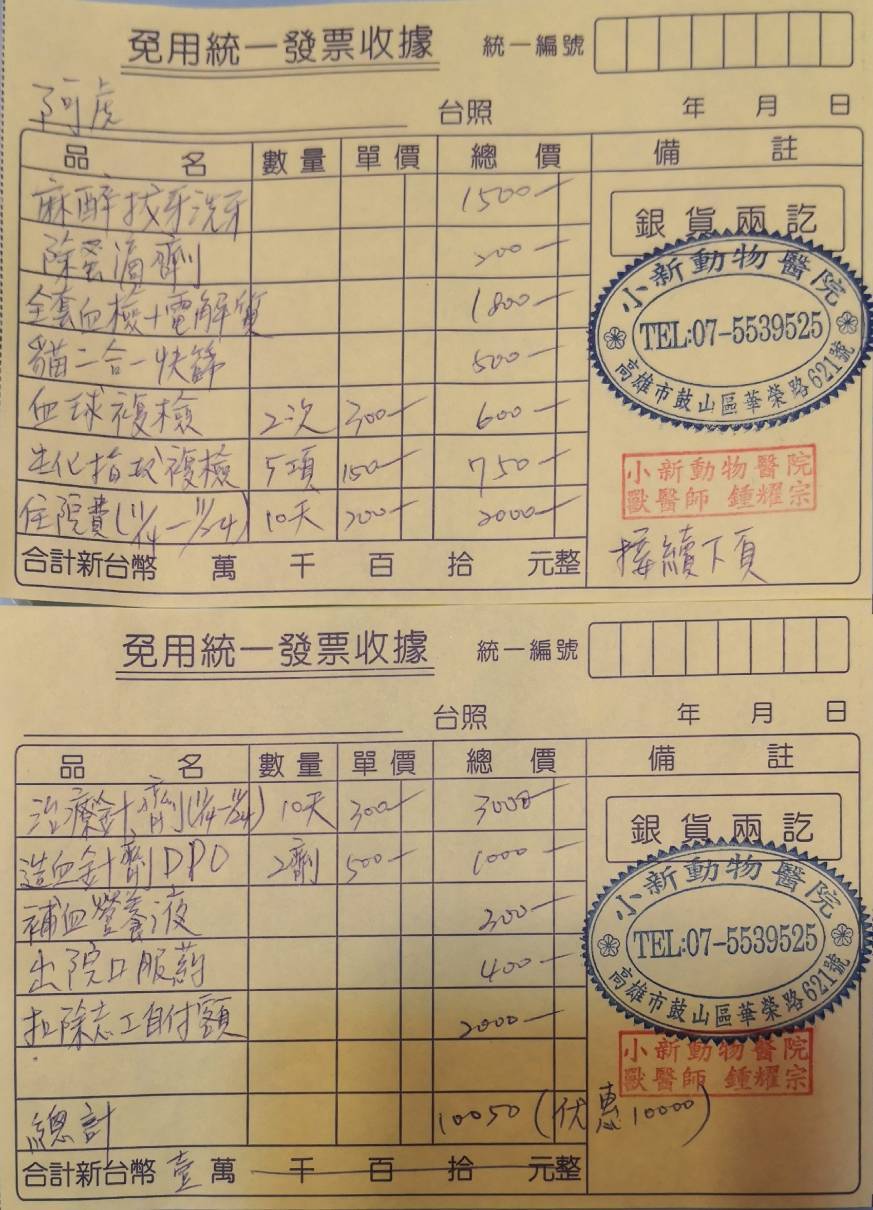 免用統一發票收據 統一編號
阿虎 台照 年 月 日
品名 數量 單價 總價 備註
麻醉拔牙洗牙 1500-
除蚤滴劑 200-
全套血檢+電解質 1800-
貓二合一快篩 500-
血球複檢 2次 300- 600-
生化指數複檢 5項 150- 750-
住院費(11/14-11/24) 10天 200- 2000-
合計新台幣 萬 千 百 拾 元整
銀貨兩訖
小新動物醫院
TEL:07-5539525
高雄市鼓山區華榮路621號
小新動物醫院
獸醫師 鍾耀宗
接續下頁
免用統一發票收據 統一編號
台照 年 月 日
品名 數量 單價 總價 備註
治療針劑(11/14-11/24) 10天 300- 3000-
造血針劑DPO 2劑 500- 1000-
補血營養液 300-
出院口服葯 400-
扣除志工自付額 2000-
總計 10050 (伏惠10000)
合計新台幣 壹萬 千 百 拾 元整
銀貨兩訖
小新動物醫院
TEL:07-5539525
高雄市鼓山區華榮路621號
小新動物醫院
獸醫師 鍾耀宗